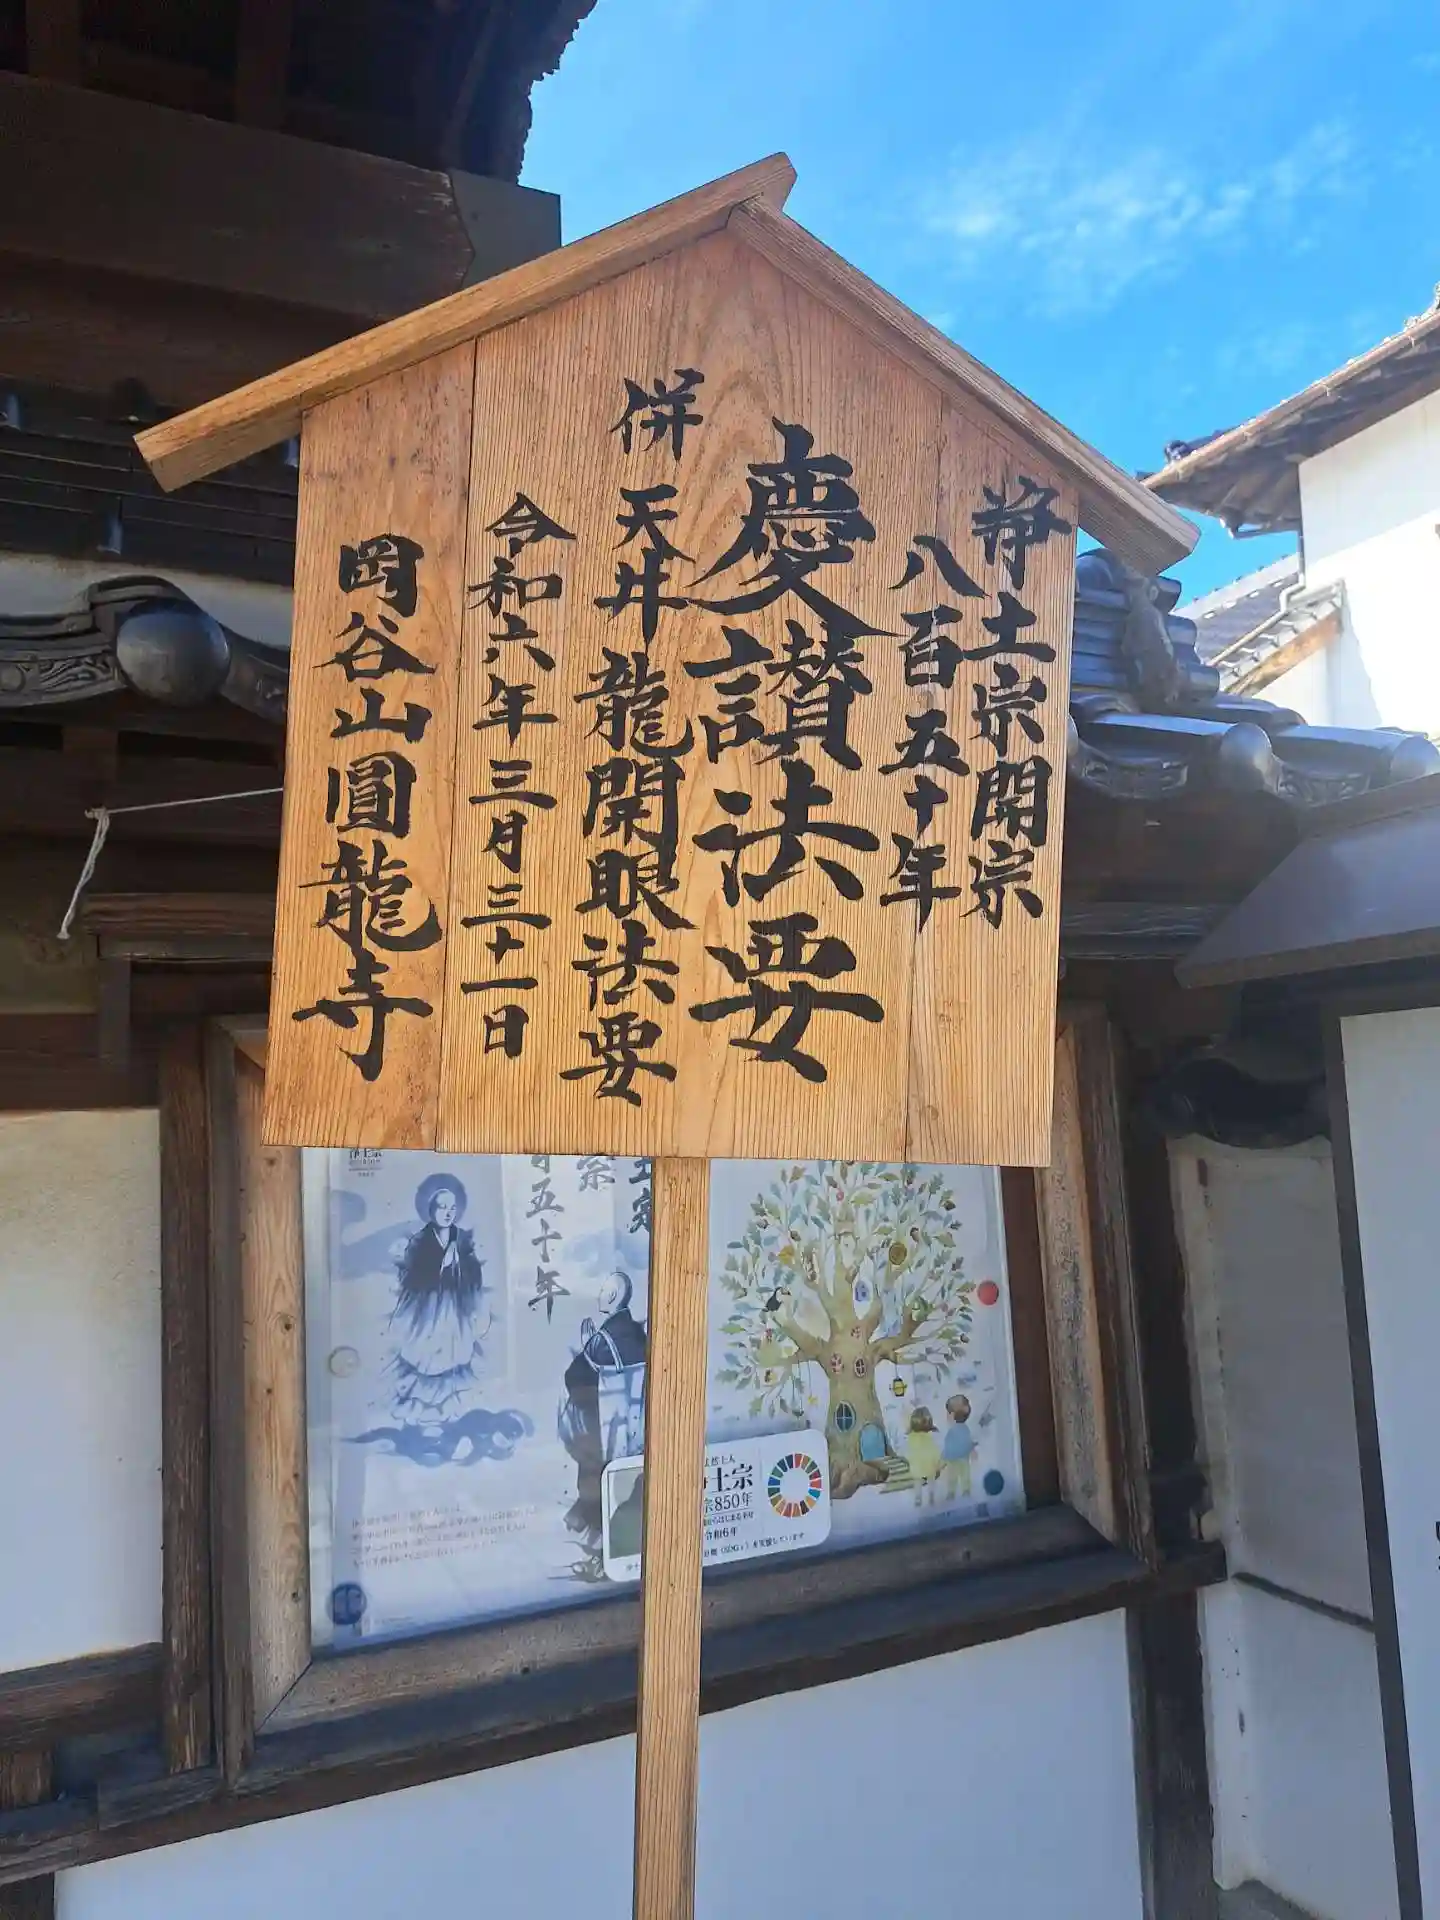 浄土宗開宗
八百五十年
慶讃法要
併 天井龍開眼法要
令和六年三月三十一日
岡谷山圓龍寺
五十年
土宗
宗850年
令和6年